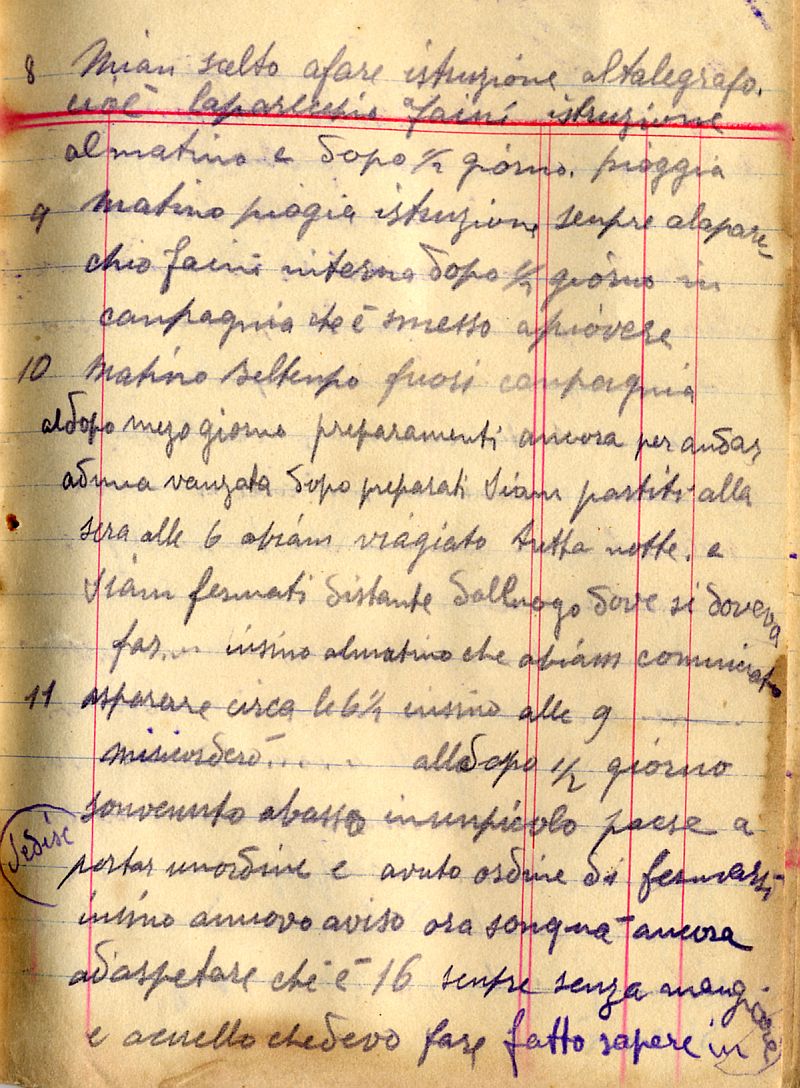 8 Mian scelto afare istruzione altalegrafo.
cioè laparecchio Faini istruzione
almatino e dopo ½ giorno. pioggia
9 Matino piogia istruzione senpre alapare-
chio faini interno dopo ½ giorno in
canpagnia che è smesso apiovere
10 Matino Beltenpo fuori canpagnia
aldopo mezogiorno preparamenti ancora per andar
aduna vanzata dopo preparati Siam partiti alla
sera alle 6 abiám viagiato tutta notte. e
Siám fermati distante dalluogo dove si doveva
far... insino almatino che abiám cominciato
11 asparare circa le 6¼ insino alle 9
misicorderò...... alldopo 1/2 giorno
sonvenuto abasso inunpicolo paese a
portar unordine e avuto ordine di fermarsi
Tedisc
insino anuovo aviso ora sonquà ancora
adaspetare che è 16 senpre senza mangiare
e acuello chedevo fare fatto sapere in